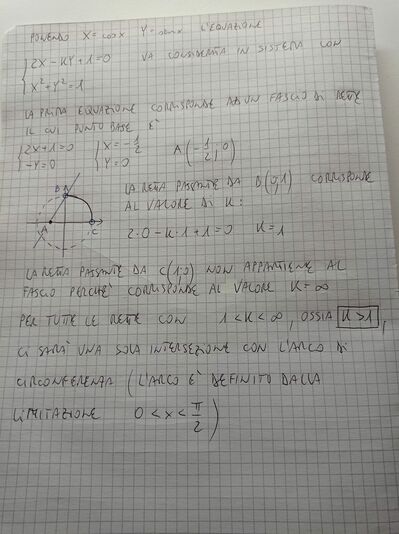 PONENDO X=cosx Y=sinx L'EQUAZIONE
{2X-KY+1=0 VA CONSIDERATA IN SISTEMA CON
{X²+Y²=1
LA PRIMA EQUAZIONE CORRISPONDE AD UN FASCIO DI RETTE
IL CUI PUNTO BASE È
{2X+1=0 {X=-1/2 A(-1/2;0)
{-Y=0 {Y=0
LA RETTA PASSANTE DA B(0;1) CORRISPONDE
AL VALORE DI K:
2·0-K·1+1=0 K=1
B
A
C
LA RETTA PASSANTE DA C(1;0) NON APPARTIENE AL
FASCIO PERCHÈ CORRISPONDE AL VALORE K=∞
PER TUTTE LE RETTE CON 1<K<∞, OSSIA K>1,
CI SARÀ UNA SOLA INTERSEZIONE CON L'ARCO DI
CIRCONFERENZA (L'ARCO È DEFINITO DALLA
LIMITAZIONE 0<x<π/2)